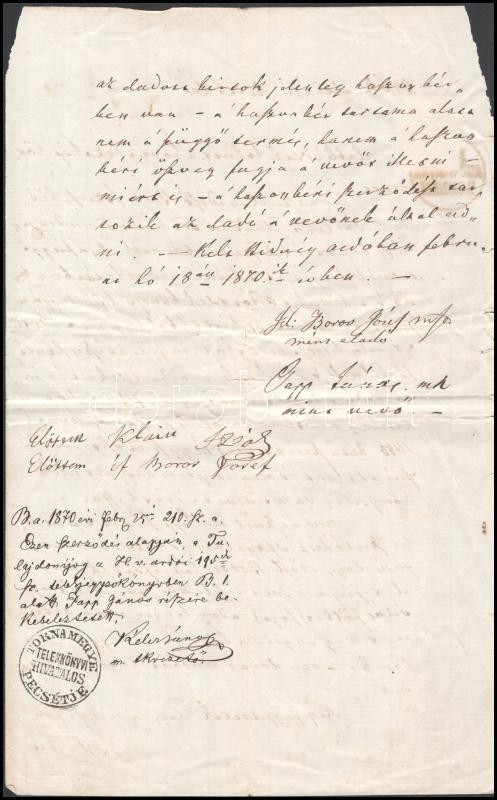 az eladott birtok jelenleg haszonbér„
ben van – á haszonbér tartama alatt
nem á függő termés, hanem á haszon
béri összeg fogja á vevőt illetni –
miért is – á haszonbéri szerződést tar„
tozik az eladó á vevőnek által ad„
ni. – Kelt Hidvég Ardóban febru„
ár hó 18án 1870.ik évben. –
Id. Boros József
mint eladó
Papp János. mk
mint vevő –
Előttem Klain
Előttem if Boros József
B.a. 1870 évi Febr 25én 210. sz. a.
Ezen szerződés alapján, a Tu-
lajdonjog a H. v. ardói 195
sz. telekjegyzőkönyvben B. 1.
alatt Papp János részére be-
kebeleztetett.
TORNAMEGYE
TELEKKÖNYVI
HIVATALOS
PECSÉTJE